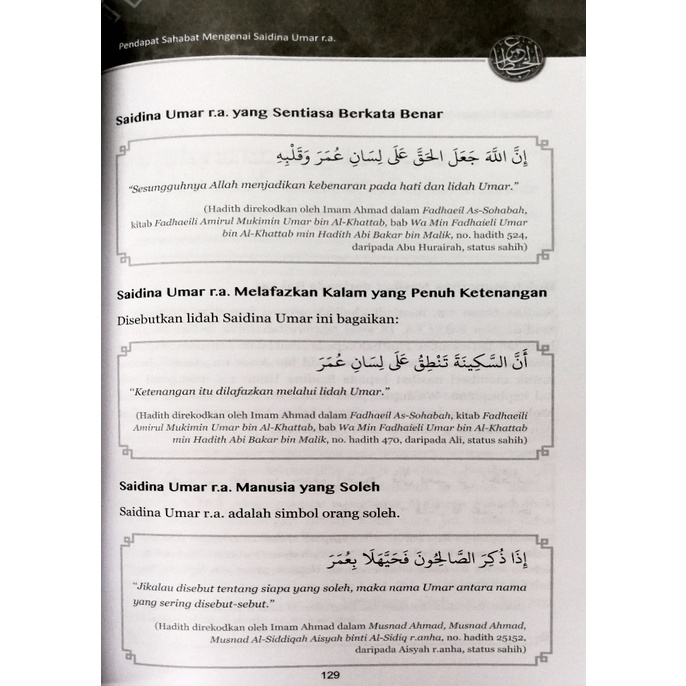 Pendapat Sahabat Mengenai Saidina Umar r.a.
Saidina Umar r.a. yang Sentiasa Berkata Benar
إِنَّ اللَّهَ جَعَلَ الحَقَّ عَلَى لِسَانِ عُمَرَ وَقَلْبِهِ
“Sesungguhnya Allah menjadikan kebenaran pada hati dan lidah Umar.”
(Hadith direkodkan oleh Imam Ahmad dalam Fadhaeil As-Sohabah,
kitab Fadhaeili Amirul Mukimin Umar bin Al-Khattab, bab Wa Min Fadhaieli Umar
bin Al-Khattab min Hadith Abi Bakar bin Malik, no. hadith 524,
daripada Abu Hurairah, status sahih)
Saidina Umar r.a. Melafazkan Kalam yang Penuh Ketenangan
Disebutkan lidah Saidina Umar ini bagaikan:
أَنَّ السَّكِينَةَ تَنْطِقُ عَلَى لِسَانِ عُمَرَ
“Ketenangan itu dilafazkan melalui lidah Umar.”
(Hadith direkodkan oleh Imam Ahmad dalam Fadhaeil As-Sohabah, kitab Fadhaeili
Amirul Mukimin Umar bin Al-Khattab, bab Wa Min Fadhaieli Umar bin Al-Khattab
min Hadith Abi Bakar bin Malik, no. hadith 470, daripada Ali, status sahih)
Saidina Umar r.a. Manusia yang Soleh
Saidina Umar r.a. adalah simbol orang soleh.
إِذَا ذُكِرَ الصَّالِحُونَ فَحَيَّهَلَا بِعُمَرَ
“Jikalau disebut tentang siapa yang soleh, maka nama Umar antara nama
yang sering disebut-sebut.”
(Hadith direkodkan oleh Imam Ahmad dalam Musnad Ahmad, Musnad Ahmad,
Musnad Al-Siddiqah Aisyah binti Al-Sidiq r.anha, no. hadith 25152,
daripada Aisyah r.anha, status sahih)
129